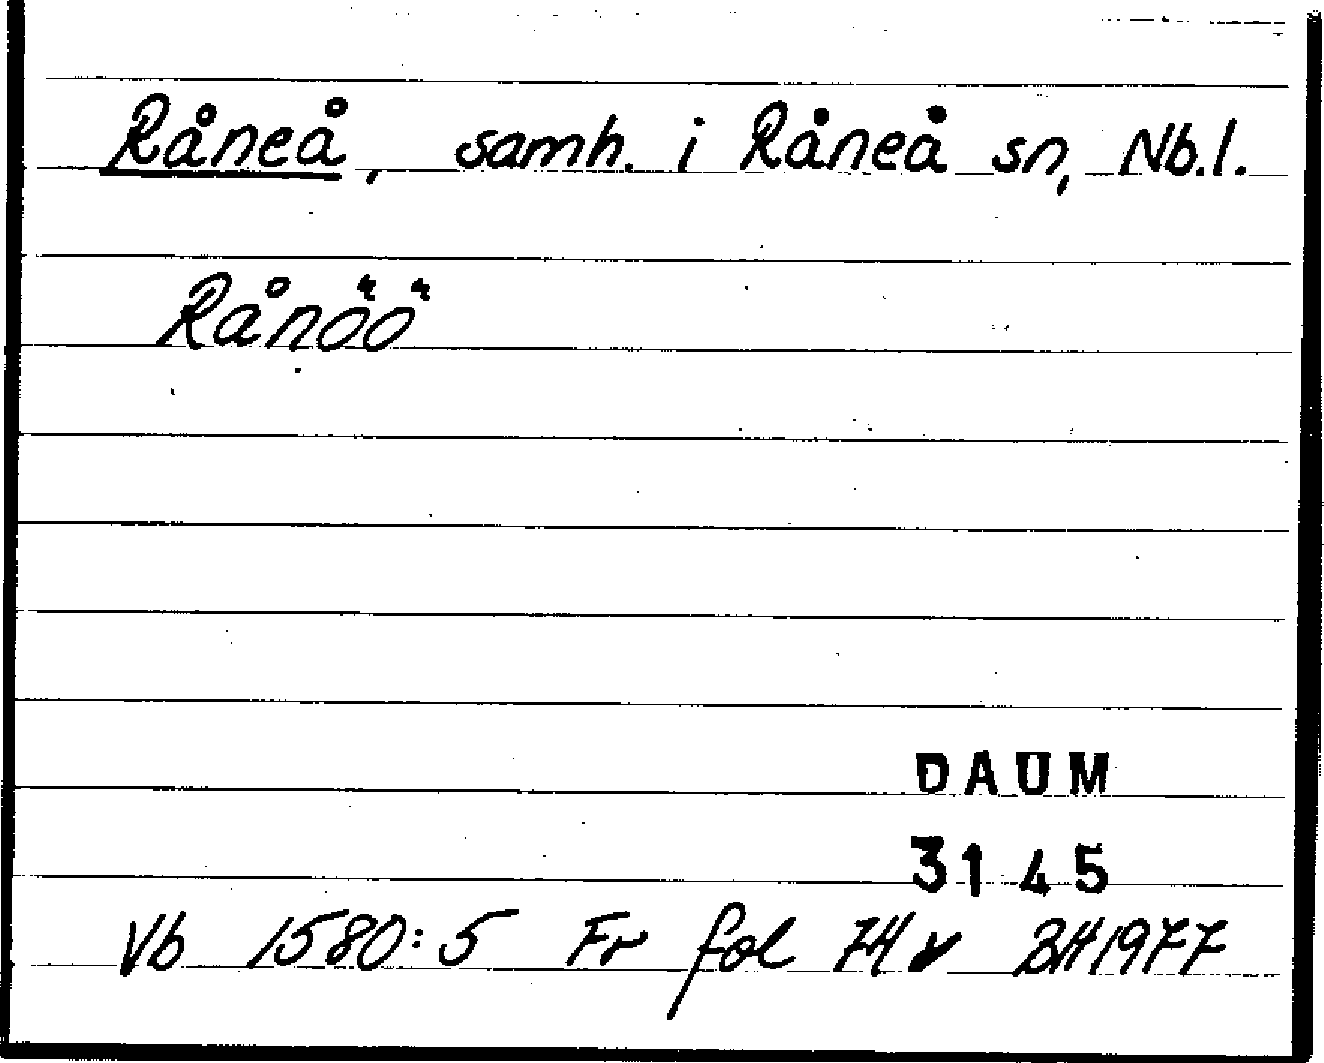 Råneå, samh. i Råneå sn, Nb.l.
Rånöö
DAUM
3145
Vb 1580:5 Fr fol 74 v BH1977